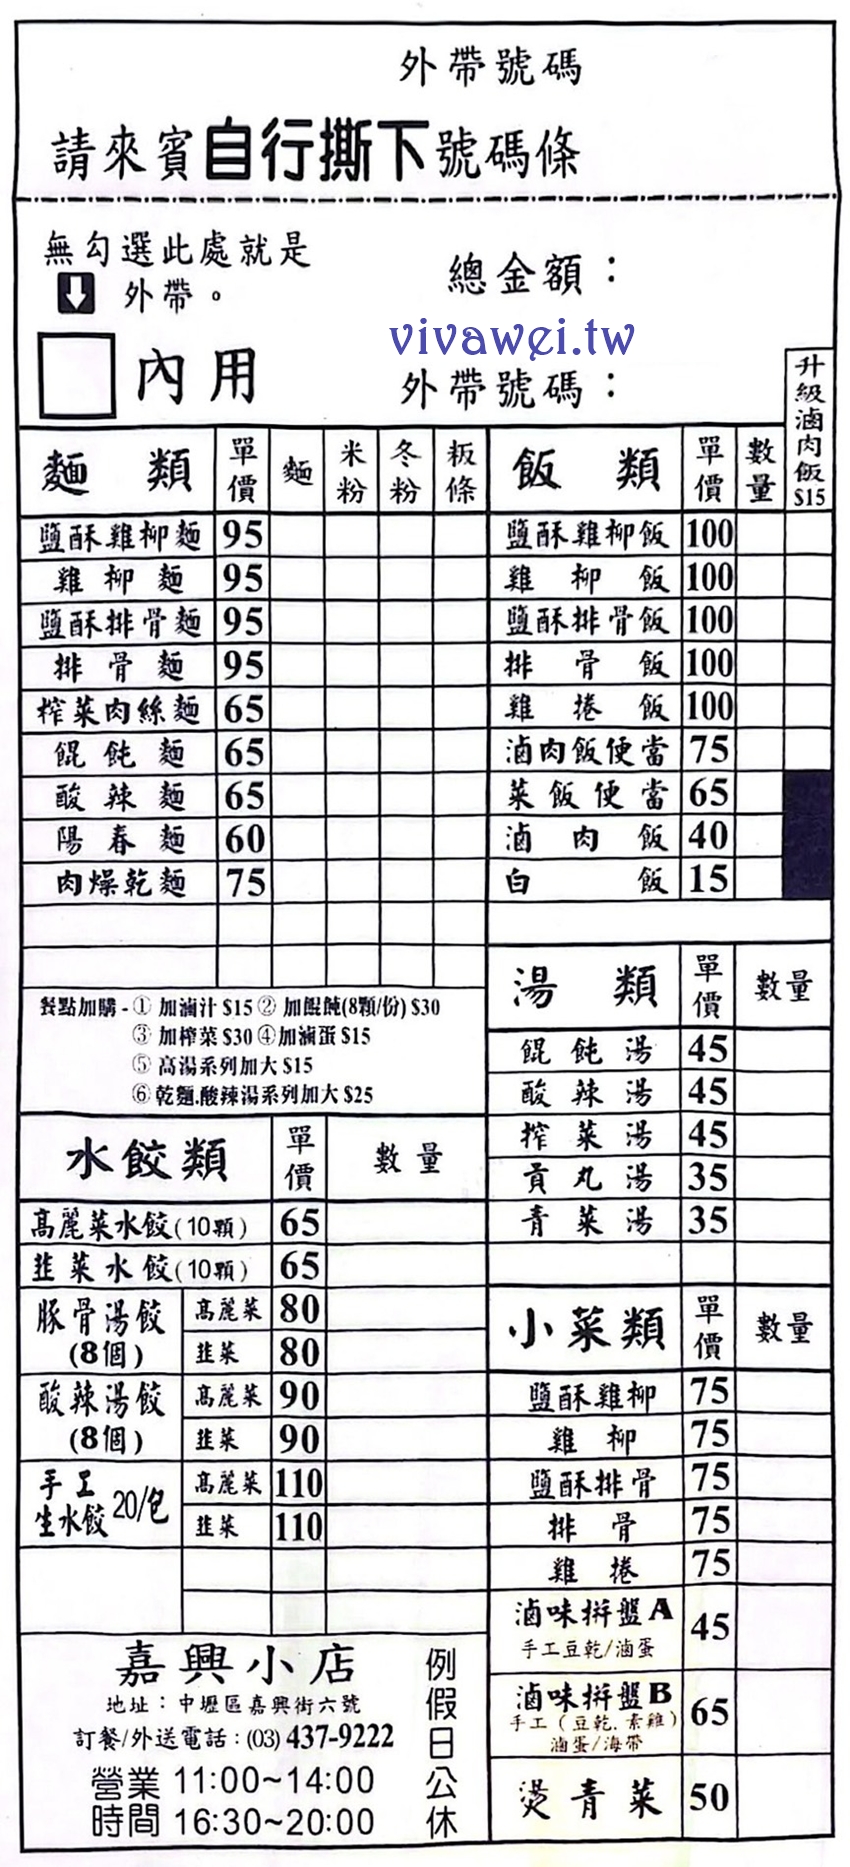 外帶號碼
請來賓自行撕下號碼條
無勾選此處就是
外帶。
總金額：
vivawei.tw
內用
外帶號碼：
升級滷肉飯$15
麵類 單價 麵 米粉 冬粉 粄條
鹽酥雞柳麵 95
雞柳麵 95
鹽酥排骨麵 95
排骨麵 95
榨菜肉絲麵 65
餛飩麵 65
酸辣麵 65
陽春麵 60
肉燥乾麵 75
餐點加購-① 加滷汁 $15 ② 加餛飩(8顆/份) $30
③ 加榨菜 $30 ④加滷蛋 $15
⑤ 高湯系列加大 $15
⑥乾麵.酸辣湯系列加大 $25
水餃類 單價 數量
高麗菜水餃(10顆) 65
韭菜水餃(10顆) 65
豚骨湯餃(8個) 高麗菜 80
韭菜 80
酸辣湯餃(8個) 高麗菜 90
韭菜 90
手工生水餃 20/包 高麗菜 110
韭菜 110
飯類 單價 數量
鹽酥雞柳飯 100
雞柳飯 100
鹽酥排骨飯 100
排骨飯 100
雞捲飯 100
滷肉飯便當 75
菜飯便當 65
滷肉飯 40
白飯 15
湯類 單價 數量
餛飩湯 45
酸辣湯 45
榨菜湯 45
貢丸湯 35
青菜湯 35
小菜類 單價 數量
鹽酥雞柳 75
雞柳 75
鹽酥排骨 75
排骨 75
雞捲 75
滷味拼盤A 45
手工豆乾/滷蛋
滷味拼盤B 65
手工（豆乾.素雞）
滷蛋/海帶
燙青菜 50
嘉興小店
地址：中壢區嘉興街六號
訂餐/外送電話：(03) 437-9222
營業時間 11:00~14:00
16:30~20:00
例假日公休